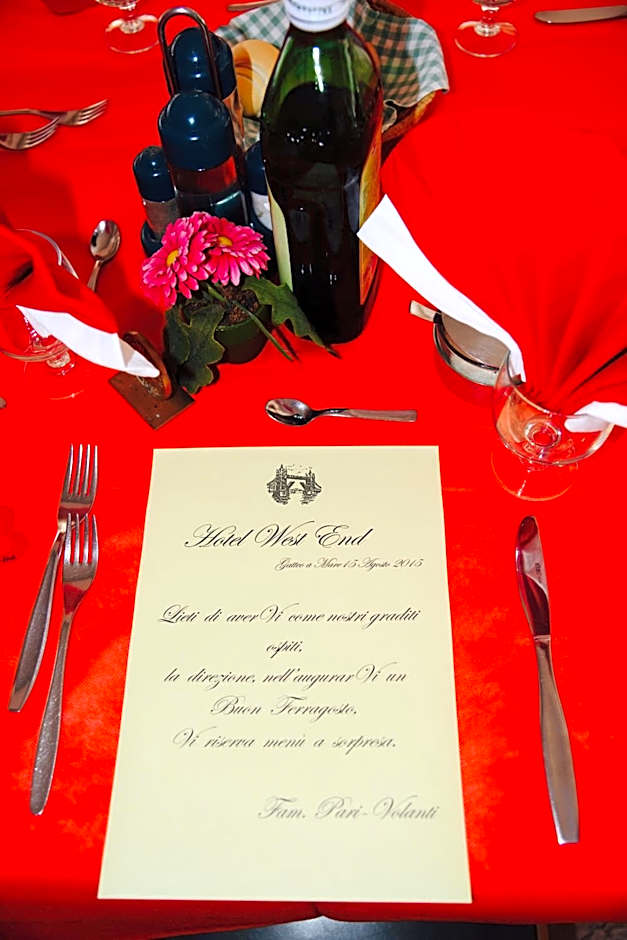 Hotel West End
Gatteo a Mare 15 Agosto 2015
Lieti di averVi come nostri graditi
ospiti,
la direzione, nell'augurarVi un
Buon Ferragosto,
Vi riserva menù a sorpresa.
Fam. Pari-Volanti